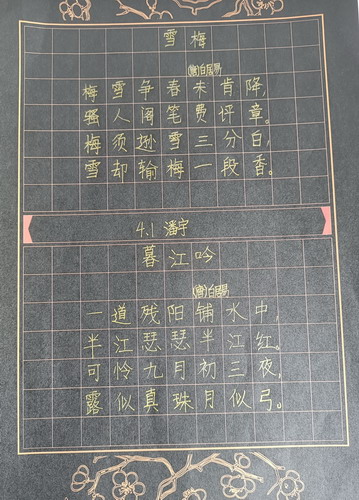 雪梅
(唐)白居易
梅雪争春未肯降,
骚人阁笔费评章。
梅须逊雪三分白,
雪却输梅一段香。
4.1 潘宇
暮江吟
(唐)白居易
一道残阳铺水中,
半江瑟瑟半江红。
可怜九月初三夜,
露似真珠月似弓。